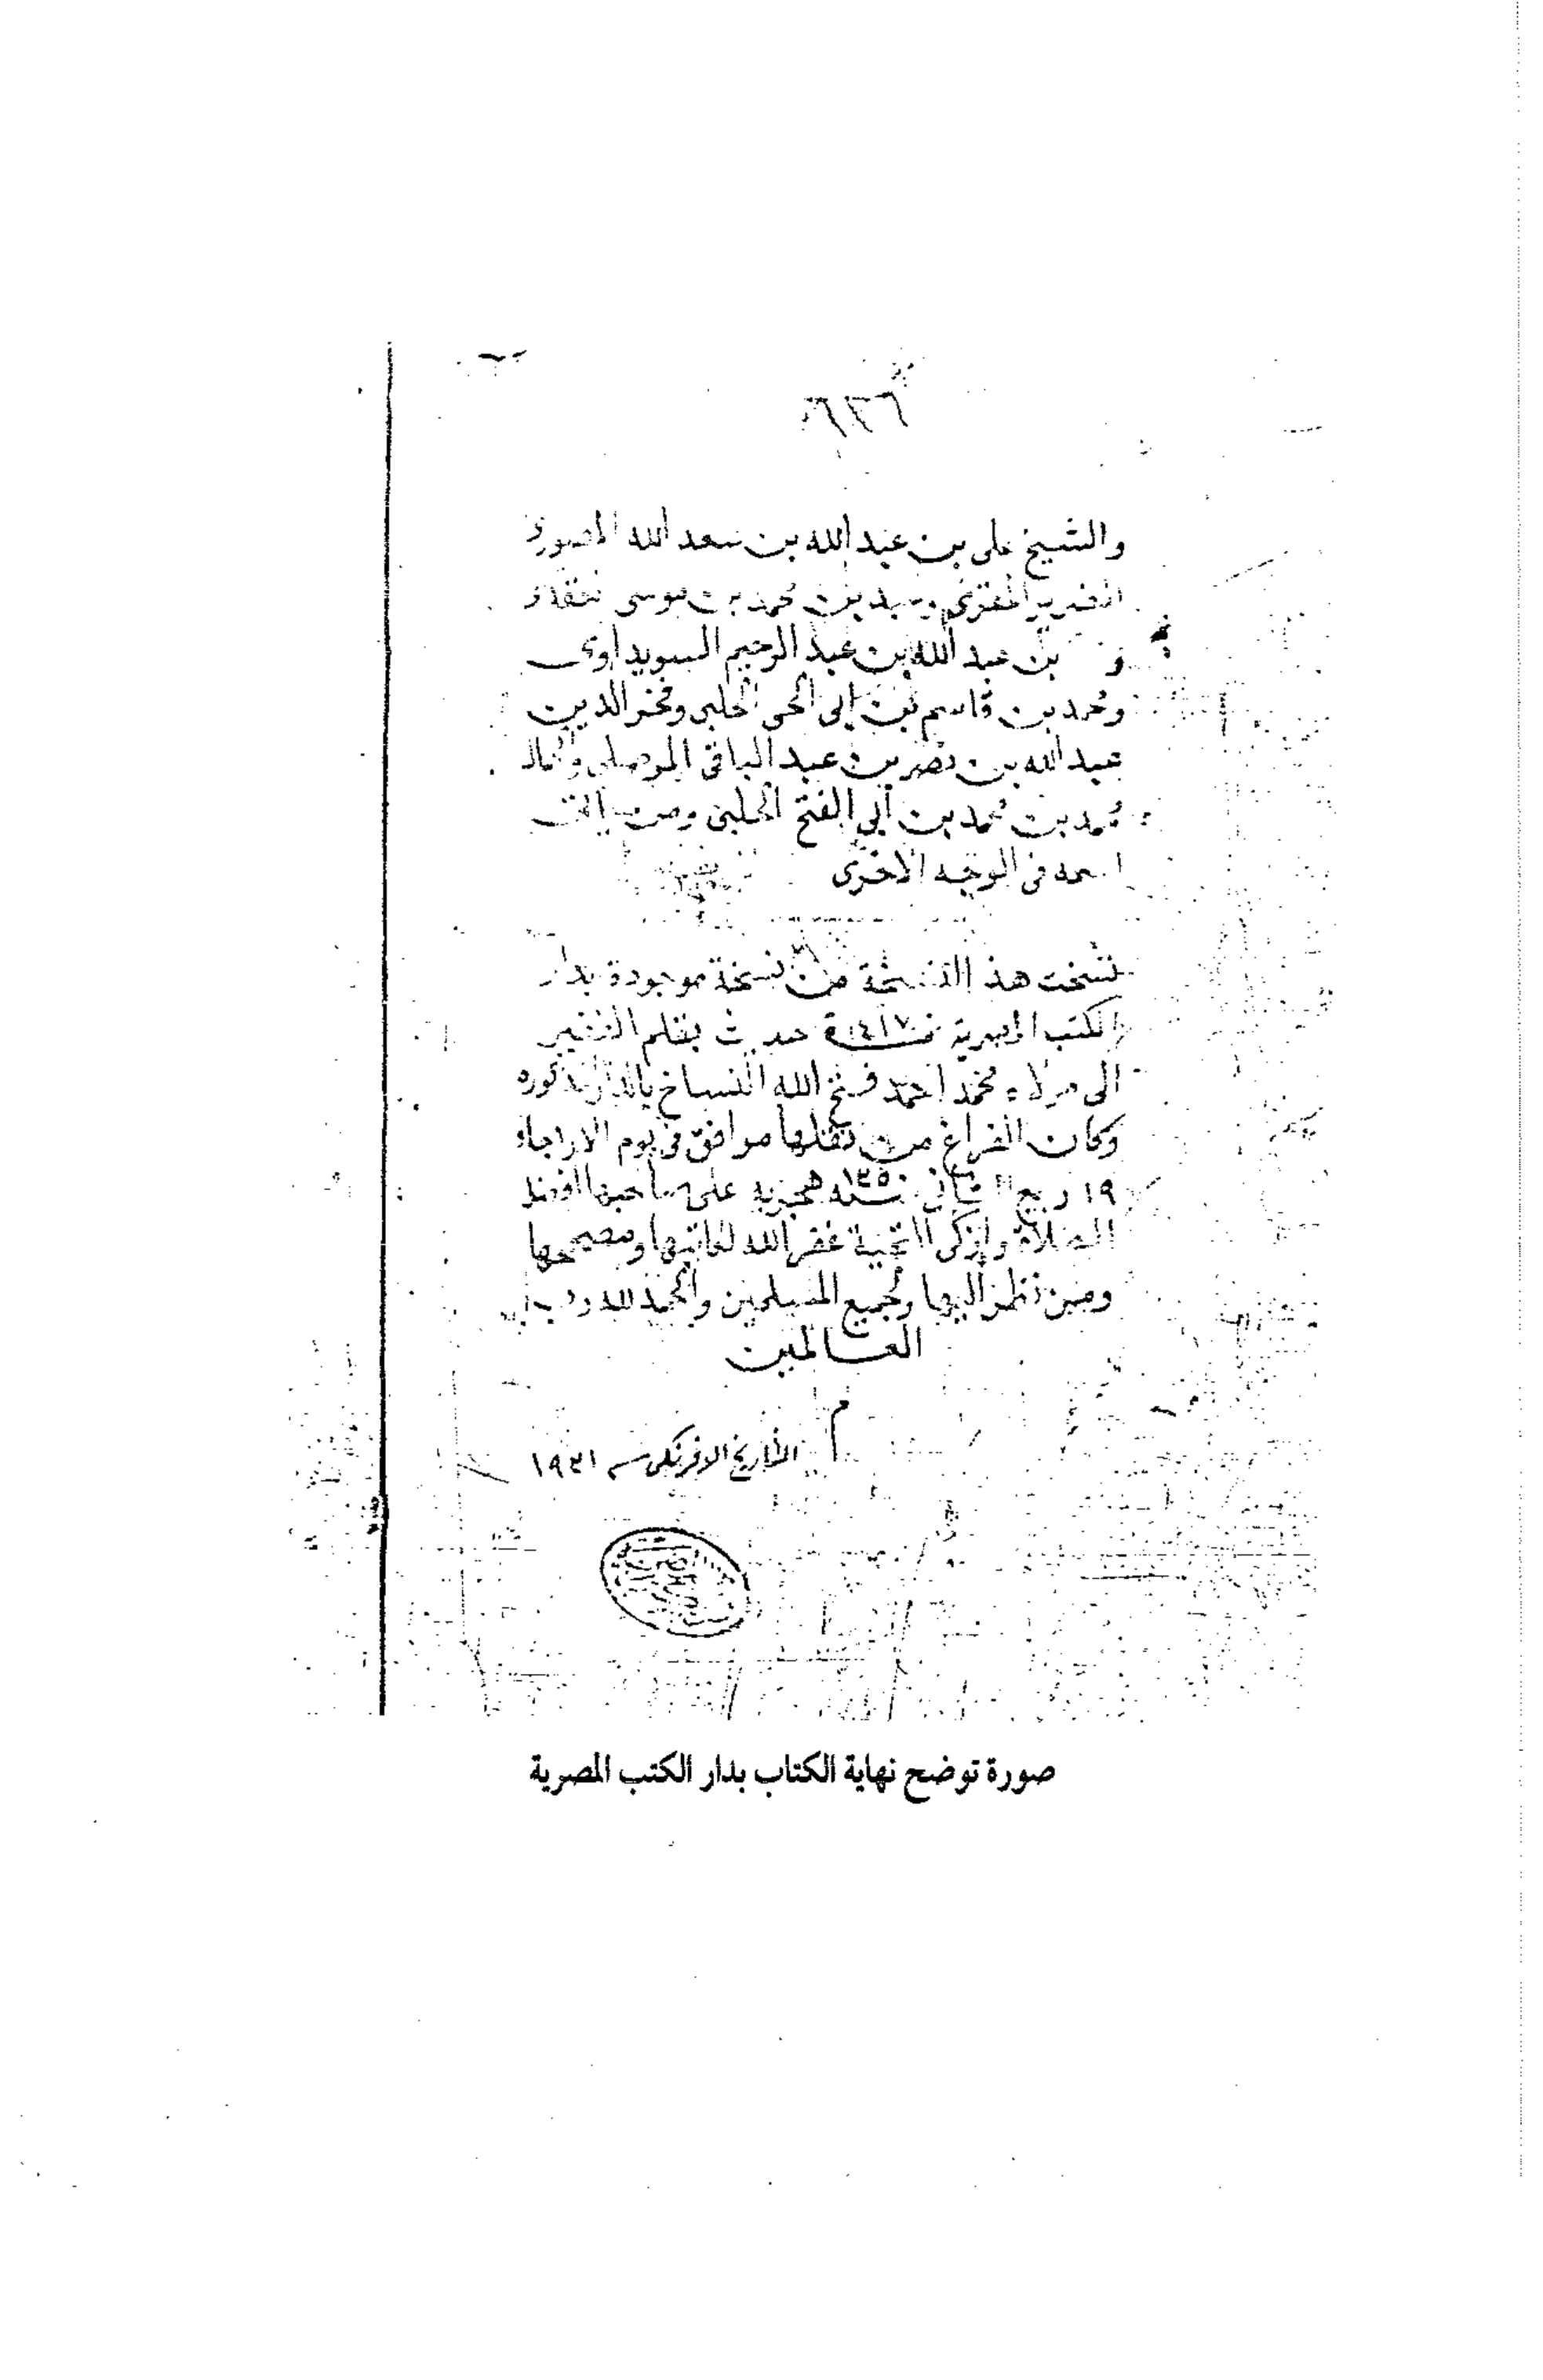 ٦٣٦
والشيخ على بن عبد الله بن سعد الله
الضرير المقرئ بن محمد بن موسى
بن عبد الله بن عبد الرحيم السويداوى
ومحمد بن قاسم بن ابى الحلبى وفخر الدين
عبد الله بن نصر بن عبد الباقى الموصلى
محمد بن محمد بن أبى الفتح الحلبى ومن
اسمه فى الوجه الاخرى
نسخت هذ النسخة من نسخة موجودة بدار
الكتب المصرية حديث بقلم الفقير
الى مولاه محمد احمد فتح الله النساخ
وكان الفراغ من نقلها موافق فى يوم
١٩ ربيع الثانى سنة ١٣٥٠ هجرية على صاحبها افضل
الصلاة وازكى التحية غفر الله لكاتبها ومصححها
ومن نظر اليها ولجميع المسلمين والحمد لله رب
العالمين
م
التاريخ الافرنكى سـ ١٩٣١
صورة توضح نهاية الكتاب بدار الكتب المصرية